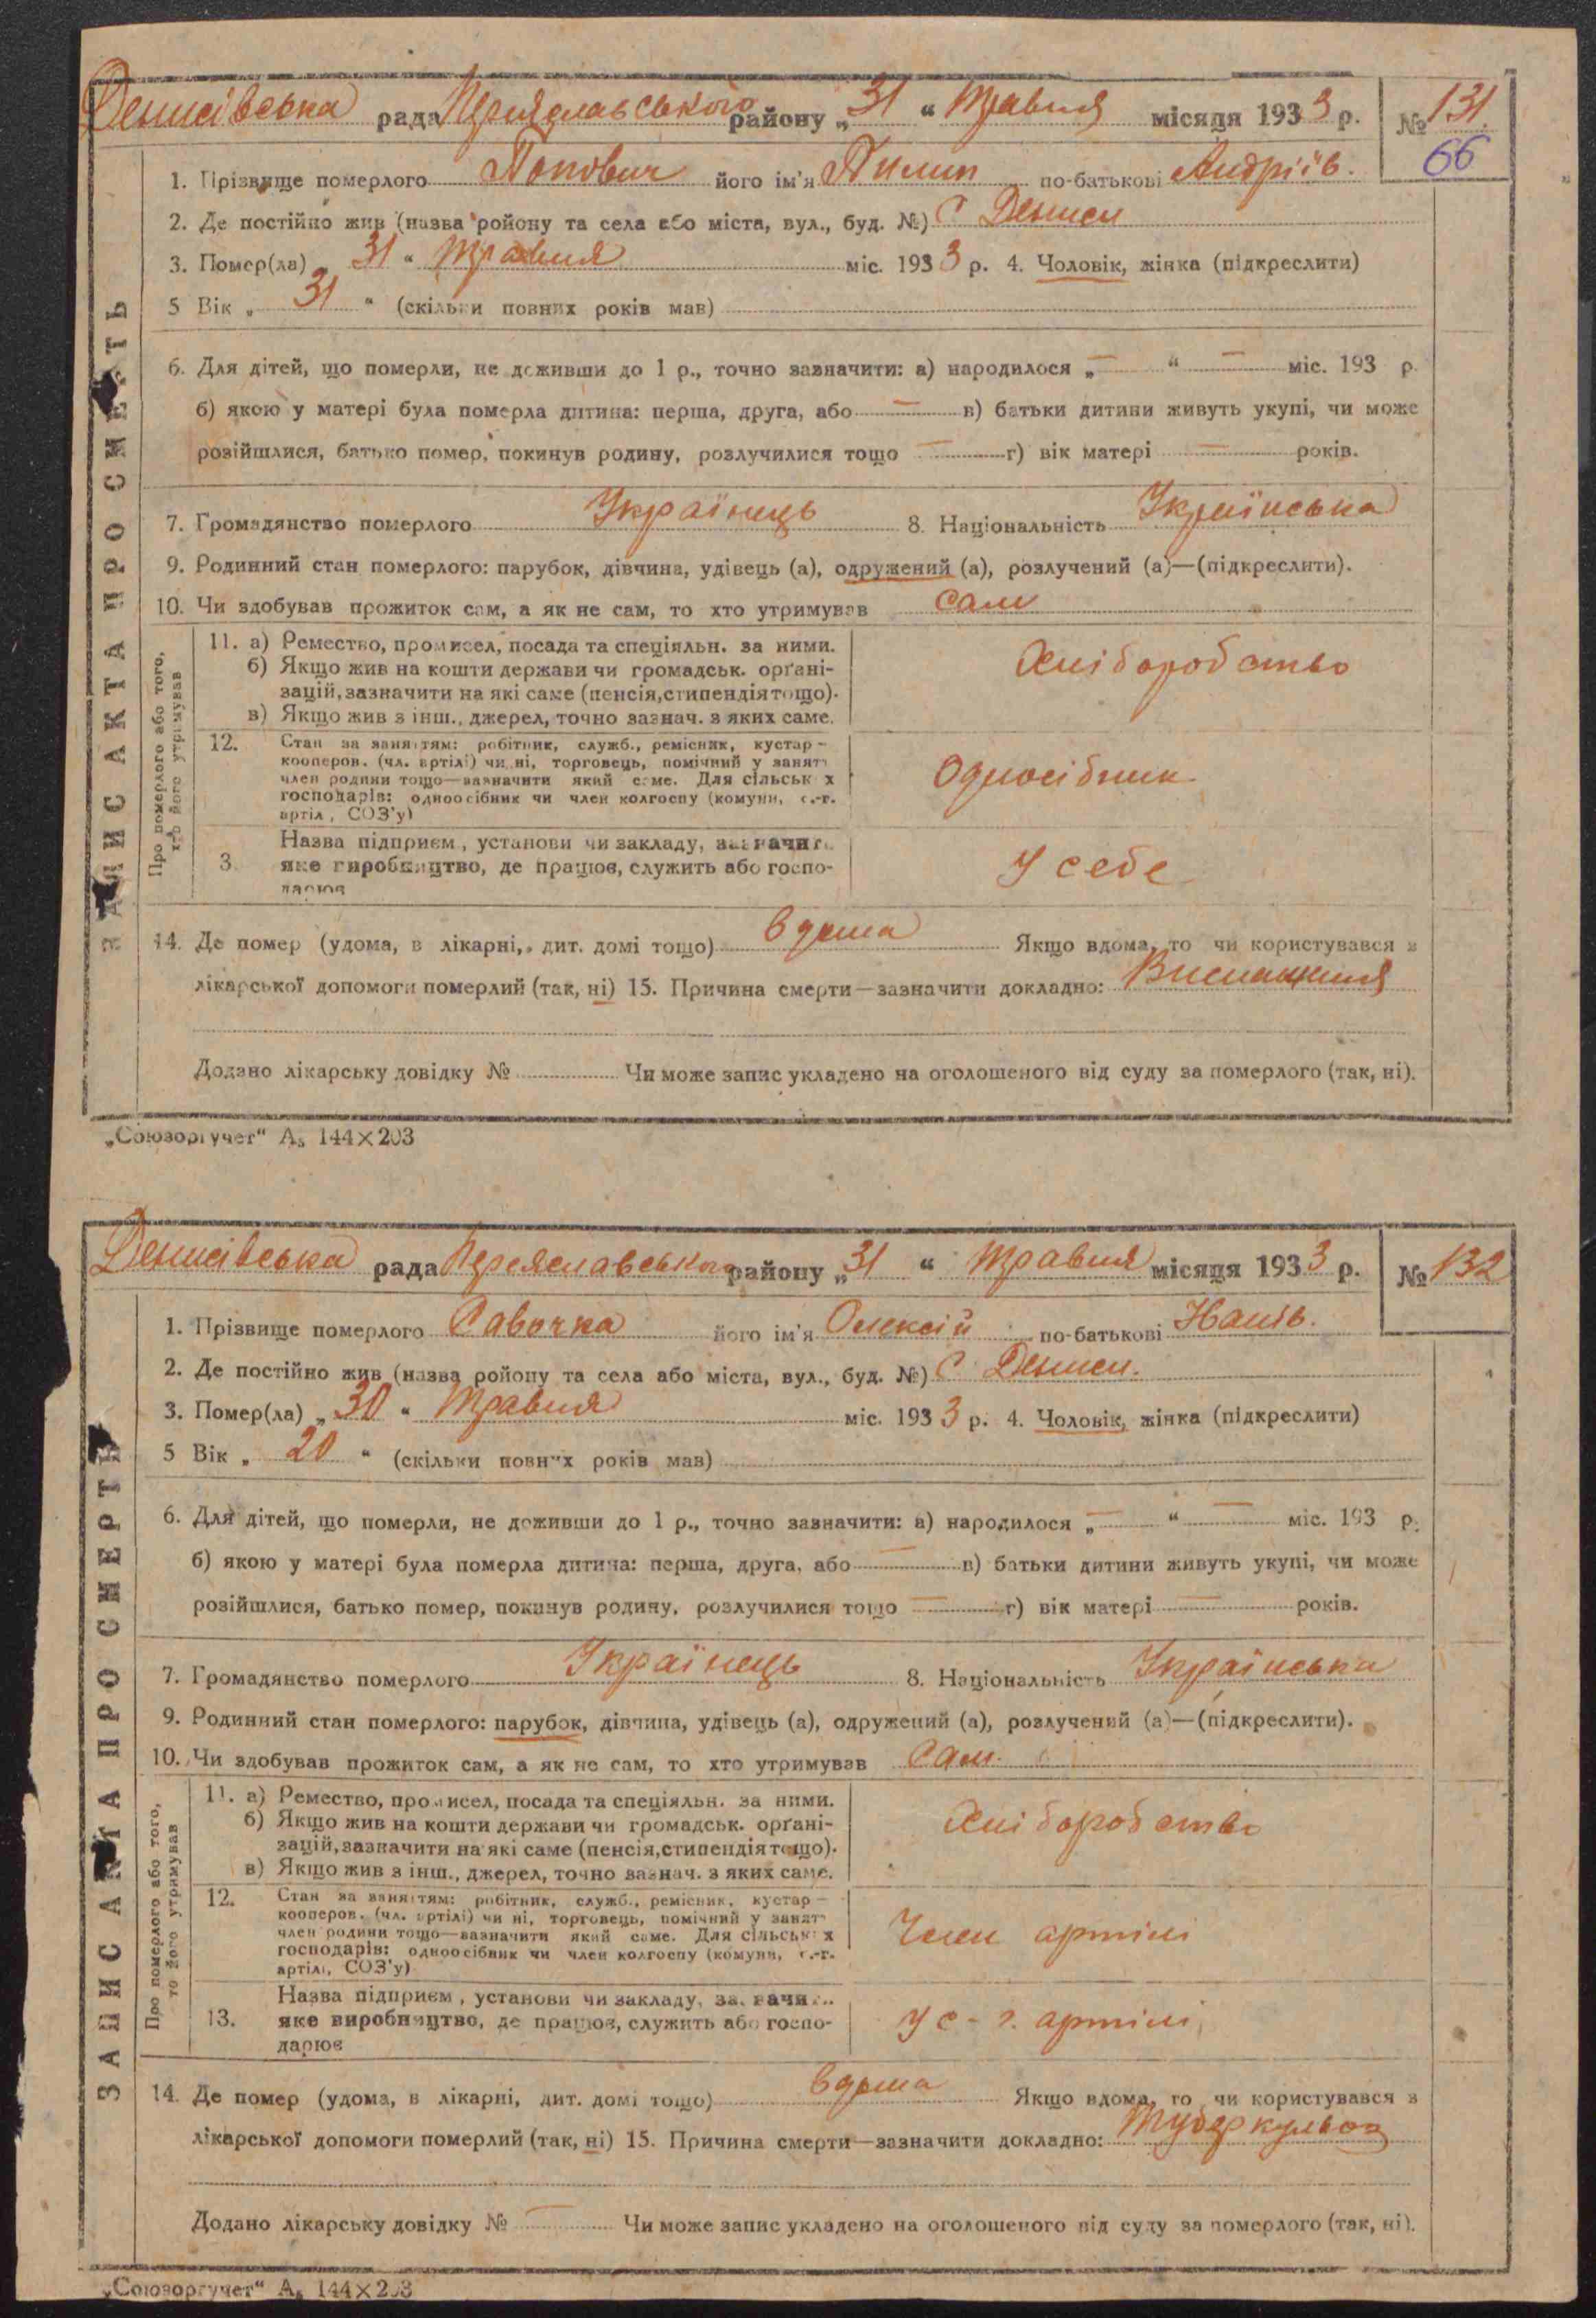 Денисівська рада Переяславського району „31“ травня місяця 1933 р. № 131.
66
1. Прізвище померлого Попович його ім'я Пилип по-батькові Андріїв.
2. Де постійно жив (назва ройону та села або міста, вул., буд. №) С Дениси
3. Помер(ла) „31“ травня міс. 1933 р. 4. Чоловік, жінка (підкреслити)
5 Вік „31“ (скільки повних років мав)
6. Для дітей, що померли, не доживши до 1 р., точно зазначити: а) народилося „—“ — міс. 193 р.
б) якою у матері була померла дитина: перша, друга, або — в) батьки дитини живуть укупі, чи може
розійшлися, батько помер, покинув родину, розлучилися тощо — г) вік матері — років.
7. Громадянство померлого Українець 8. Національність Українська
9. Родинний стан померлого: парубок, дівчина, удівець (а), одружений (а), розлучений (а)—(підкреслити).
10. Чи здобував прожиток сам, а як не сам, то хто утримував сам
ЗАПИС АКТА ПРО СМЕРТЬ
Про померлого або того,
хто його утримував
11. а) Ремество, промисел, посада та спеціяльн. за ними.
б) Якщо жив на кошти держави чи громадськ. орґані-
зацій, зазначити на які саме (пенсія, стипендія тощо).
в) Якщо жив з інш., джерел, точно зазнач. з яких саме.
Хліборобство
12. Стан за заняттям: робітник, служб., ремісник, кустар –
кооперов. (чл. артілі) чи ні, торговець, помічний у занятт
член родини тощо—зазначити який саме. Для сільськ х
господарів: одноосібник чи член колгоспу (комуни, с.-г.
артіл, СОЗ'у)
Односібник
3. Назва підприєм, установи чи закладу, зазначит
яке виробництво, де працює, служить або госпо-
дарює
У себе
14. Де помер (удома, в лікарні, дит. домі тощо) вдома Якщо вдома, то чи користувався з
лікарської допомоги померлий (так, ні) 15. Причина смерти—зазначити докладно: Виснащиния
Додано лікарську довідку № Чи може запис укладено на оголошеного від суду за померлого (так, ні).
„Союзоргучет“ А₅ 144×203
Денисівська рада Переяславського району „31“ травня місяця 1933 р. № 132
1. Прізвище померлого Савочка його ім'я Олексій по-батькові
2. Де постійно жив (назва ройону та села або міста, вул., буд. №) С Дениси.
3. Помер(ла) „30“ травня міс. 1933 р. 4. Чоловік, жінка (підкреслити)
5 Вік „20“ (скільки повних років мав)
6. Для дітей, що померли, не доживши до 1 р., точно зазначити: а) народилося „—“ — міс. 193 р.
б) якою у матері була померла дитина: перша, друга, або — в) батьки дитини живуть укупі, чи може
розійшлися, батько помер, покинув родину, розлучилися тощо — г) вік матері — років.
7. Громадянство померлого Українець 8. Національність Українська
9. Родинний стан померлого: парубок, дівчина, удівець (а), одружений (а), розлучений (а)—(підкреслити).
10. Чи здобував прожиток сам, а як не сам, то хто утримував сам.
ЗАПИС АКТА ПРО СМЕРТЬ
Про померлого або того,
то його утримував
11. а) Ремество, промисел, посада та спеціяльн. за ними.
б) Якщо жив на кошти держави чи громадськ. орґані-
зацій, зазначити на які саме (пенсія, стипендія тощо).
в) Якщо жив з інш., джерел, точно зазнач. з яких саме.
Хліборобство
12. Стан за заняттям: робітник, служб., ремісник, кустар –
кооперов. (чл. артілі) чи ні, торговець, помічний у занятт
член родини тощо—зазначити який саме. Для сільськ х
господарів: одноосібник чи член колгоспу (комуни, с.-г.
артілі, СОЗ'у)
Член артілі
13. Назва підприєм, установи чи закладу, зазначит
яке виробництво, де працює, служить або госпо-
дарює
у с-г. артілі
14. Де помер (удома, в лікарні, дит. домі тощо) вдома Якщо вдома, то чи користувався з
лікарської допомоги померлий (так, ні) 15. Причина смерти—зазначити докладно: туберкульоз
Додано лікарську довідку № — Чи може запис укладено на оголошеного від суду за померлого (так, ні).
„Союзоргучет“ А₅ 144×203